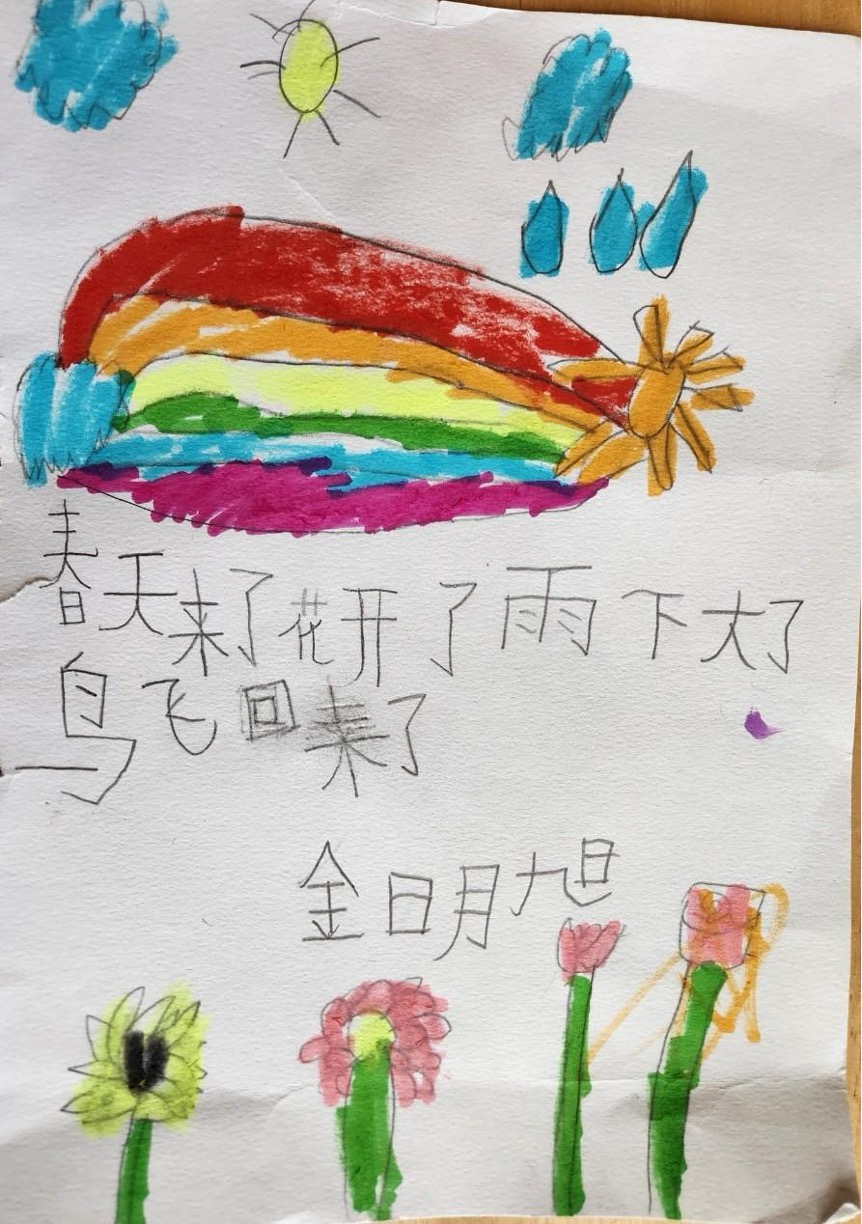 春天来了花开了雨下大了
鸟飞回来了
金日月旭